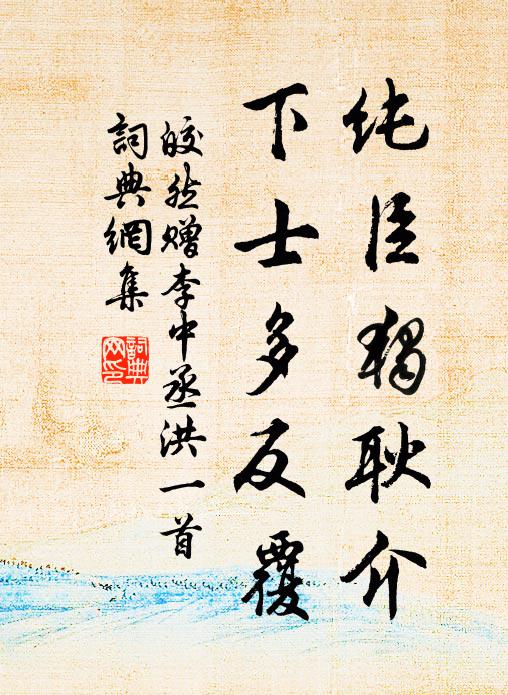 纯臣独耿介
下士多反覆
皎然赠李中丞洪一首
词典网集
词典网印